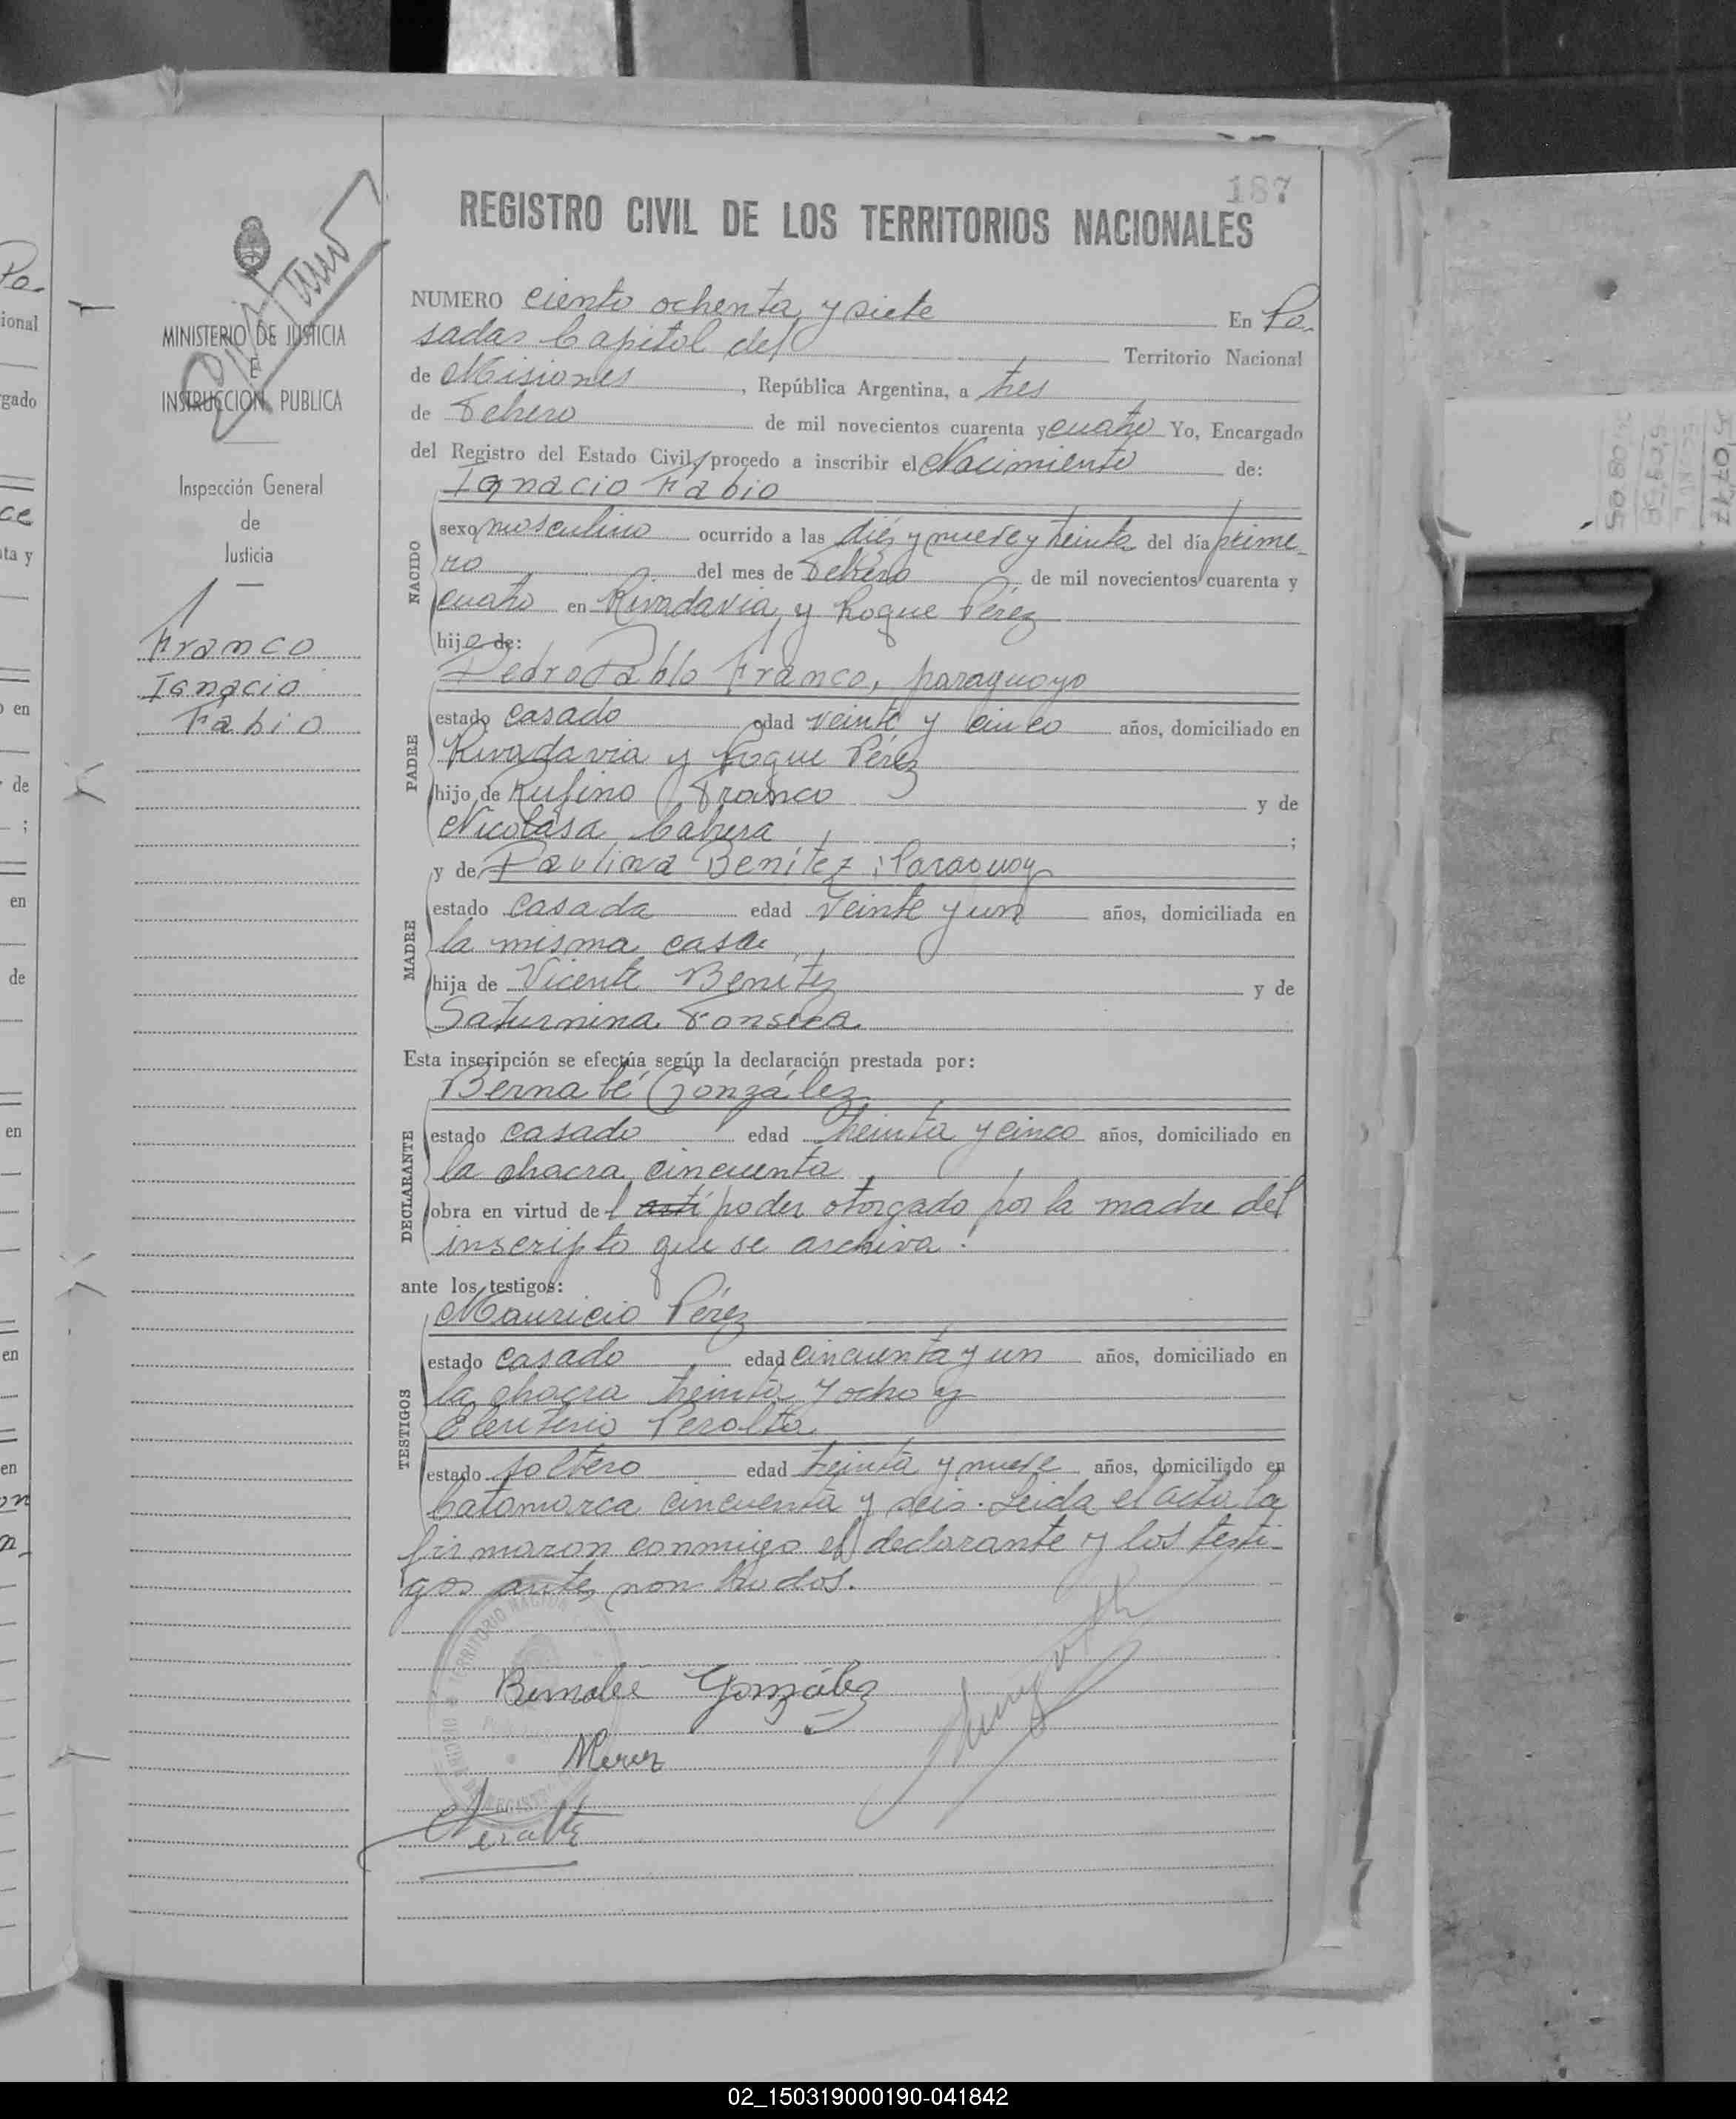 187
REGISTRO CIVIL DE LOS TERRITORIOS NACIONALES
MINISTERIO DE JUSTICIA
E
INSTRUCCION PUBLICA
Inspección General
de
Justicia
Franco
Ignacio
Fabio
NUMERO ciento ochenta y siete En Po-
sadas Capital del Territorio Nacional
de Misiones, República Argentina, a tres
de Febrero de mil novecientos cuarenta y cuatro Yo, Encargado
del Registro del Estado Civil, procedo a inscribir el Nacimiento de:
Ignacio Fabio
NACIDO
sexo masculino ocurrido a las diés y nueve y treinta del día prime-
ro del mes de Febrero de mil novecientos cuarenta y
cuatro en Rivadavia y Roque Pérez
hijo de:
Pedro Pablo Franco, paraguayo
PADRE
estado casado edad veinte y cinco años, domiciliado en
Rivadavia y Roque Pérez
hijo de Rufino Franco y de
Nicolasa Cabrera;
y de Paulina Benítez; Paraguay
MADRE
estado casada edad veinte y un años, domiciliada en
la misma casa
hija de Vicente Benítez y de
Saturnina Fonseca
Esta inscripción se efectúa según la declaración prestada por:
Bernabé González
DECLARANTE
estado casado edad treinta y cinco años, domiciliado en
la chacra cincuenta
obra en virtud del poder otorgado por la madre del
inscripto que se archiva.
ante los testigos:
Mauricio Pérez
TESTIGOS
estado casado edad cincuenta y un años, domiciliado en
la chacra treinta y ocho y
Eleuterio Peralta
estado soltero edad treinta y nueve años, domiciliado en
Catamarca cincuenta y seis. Leida el acta la
firmaron conmigo el declarante y los testi-
gos antes nombrados.
Bernabé González
MPerez
Peralta
Po-
ional
gado
ce
ta y
o en
de
;
en
de
en
en
en
02_150319000190-041842